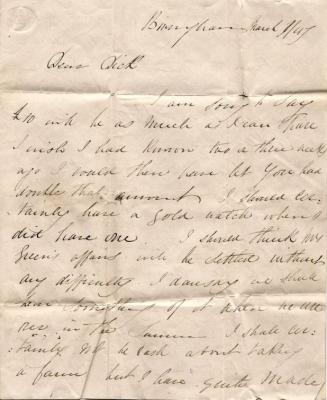 Birmingham March 9/47
Dear Dick
I am sorry to say
£10 will be as much as I can spare
I wish I had known two or three weeks
ago I could then have let you had
double that amount I should cer-
tainly have a gold watch when I
did have one I should think Mr
Green's affairs will be settled without
any difficulty I daresay we shall
hear something of it when he
in the I shall cer-
tainly not be rash about taking
a farm but I have quite made